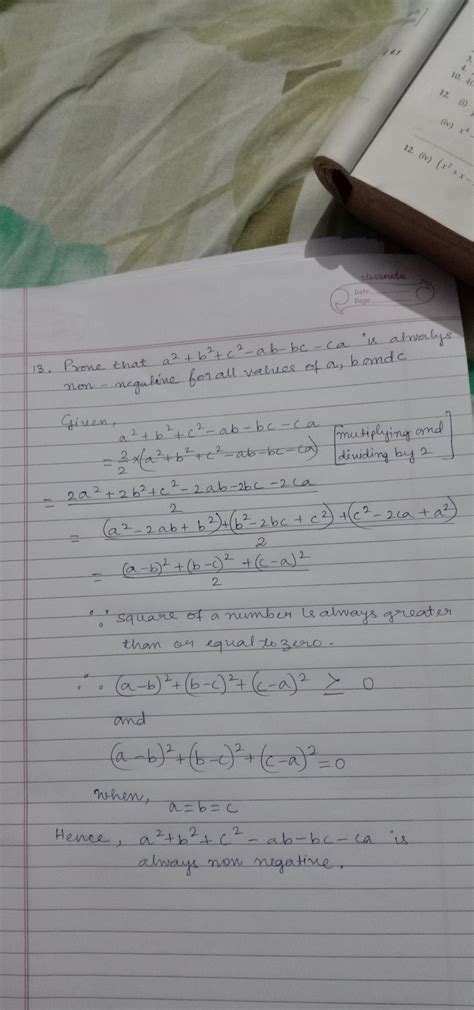 3.
4.
10.
12. (i)
(iv) x⁴ -
12. (iv) (x² + x -
classmate
Date
Page
13. Prove that a² + b² + c² - ab - bc - ca is always
non - negative for all values of a, b and c
Given,
a² + b² + c² - ab - bc - ca
= 2/2 × (a² + b² + c² - ab - bc - ca) [mutiplying and
dividing by 2]
= 2a² + 2b² + c² - 2ab - 2bc - 2ca / 2
= (a² - 2ab + b²) + (b² - 2bc + c²) + (c² - 2ca + a²) / 2
= (a-b)² + (b-c)² + (c-a)² / 2
∵ square of a number is always greater
than or equal to zero.
∴ (a-b)² + (b-c)² + (c-a)² ≥ 0
and
(a-b)² + (b-c)² + (c-a)² = 0
when,
a = b = c
Hence, a² + b² + c² - ab - bc - ca is
always non negative.